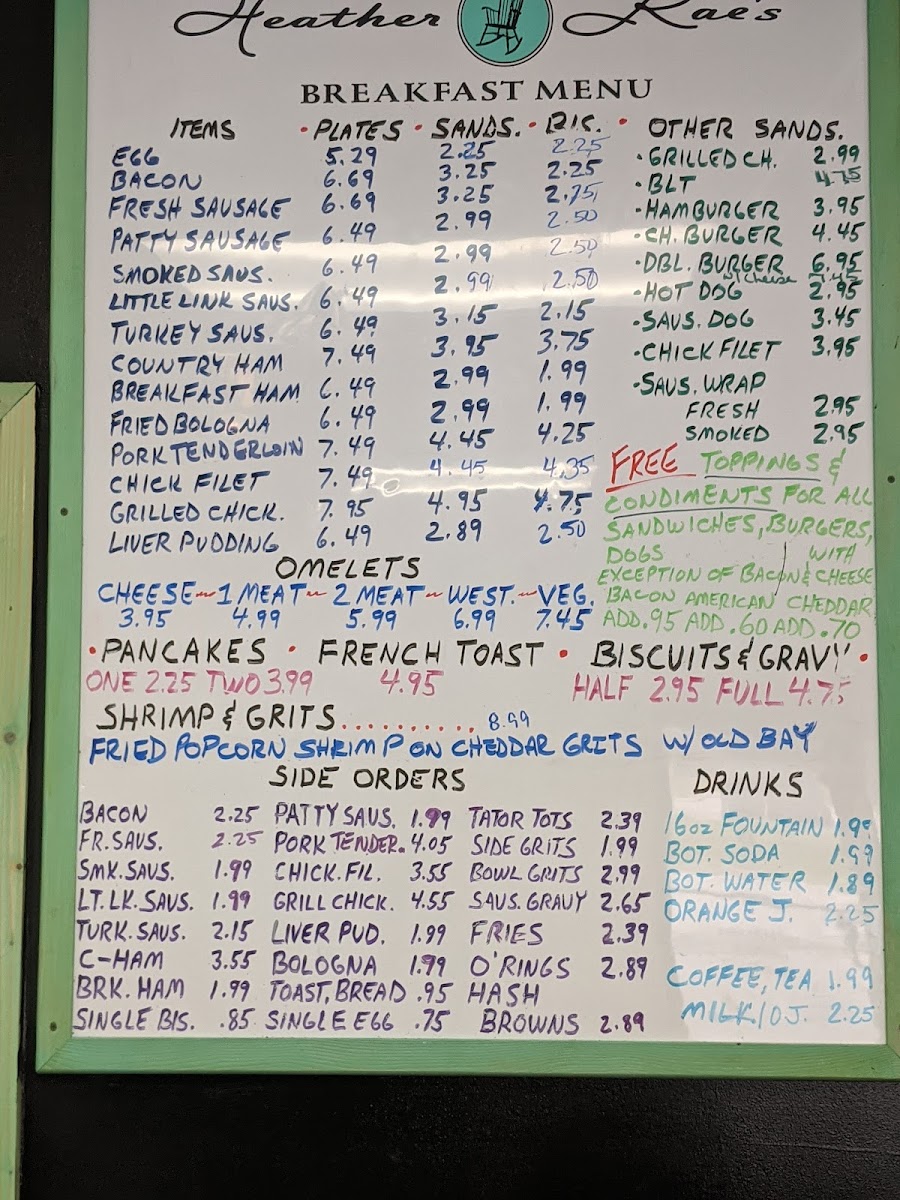 Heather Rae's
BREAKFAST MENU
ITEMS • PLATES • SANDS. • BIS. •
EGG 5.29 2.25 2.25
BACON 6.69 3.25 2.25
FRESH SAUSAGE 6.69 3.25 2.75
PATTY SAUSAGE 6.49 2.99 2.50
SMOKED SAUS. 6.49 2.99 2.50
LITTLE LINK SAUS. 6.49 2.99 2.50
TURKEY SAUS. 6.49 3.15 2.15
COUNTRY HAM 7.49 3.95 3.75
BREAKFAST HAM 6.49 2.99 1.99
FRIED BOLOGNA 6.49 2.99 1.99
PORK TENDERLOIN 7.49 4.45 4.25
CHICK FILET 7.49 4.45 4.35
GRILLED CHICK. 7.95 4.95 4.75
LIVER PUDDING 6.49 2.89 2.50
OTHER SANDS.
• GRILLED CH. 2.99
• BLT 4.75
• HAMBURGER 3.95
• CH. BURGER 4.45
• DBL. BURGER 6.95
w/cheese 7.45
• HOT DOG 2.95
• SAUS. DOG 3.45
• CHICK FILET 3.95
• SAUS. WRAP
FRESH 2.95
SMOKED 2.95
FREE TOPPINGS &
CONDIMENTS FOR ALL
SANDWICHES, BURGERS,
DOGS WITH
EXCEPTION OF BACON & CHEESE
BACON AMERICAN CHEDDAR
ADD .95 ADD .60 ADD .70
OMELETS
CHEESE ~ 1 MEAT ~ 2 MEAT ~ WEST. ~ VEG.
3.95 4.99 5.99 6.99 7.45
• PANCAKES • FRENCH TOAST • BISCUITS & GRAVY •
ONE 2.25 TWO 3.99 4.95 HALF 2.95 FULL 4.75
SHRIMP & GRITS.......... 8.99
FRIED POPCORN SHRIMP ON CHEDDAR GRITS W/ OLD BAY
SIDE ORDERS
BACON 2.25 PATTY SAUS. 1.99 TATOR TOTS 2.39
FR. SAUS. 2.25 PORK TENDER. 4.05 SIDE GRITS 1.99
SMK. SAUS. 1.99 CHICK. FIL. 3.55 BOWL GRITS 2.99
LT. LK. SAUS. 1.99 GRILL CHICK. 4.55 SAUS. GRAVY 2.65
TURK. SAUS. 2.15 LIVER PUD. 1.99 FRIES 2.39
C-HAM 3.55 BOLOGNA 1.99 O'RINGS 2.89
BRK. HAM 1.99 TOAST, BREAD .95 HASH
SINGLE BIS. .85 SINGLE EGG .75 BROWNS 2.89
DRINKS
16oz FOUNTAIN 1.99
BOT. SODA 1.99
BOT. WATER 1.89
ORANGE J. 2.25
COFFEE, TEA 1.99
MILK/OJ. 2.25